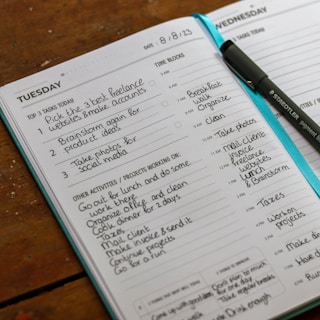 DATE: 8/8/23
TUESDAY
TOP 3 TASKS TODAY
1 Pick the 3 best freelance
websites & make accounts
2 Brainstorm again for
product ideas
3 Take photos for
social media
OTHER ACTIVITIES / PROJECTS WORKING ON:
Go out for lunch and do some
work there
Organize office and clean
Cook dinner for 2 days
Taxes
Mail client
Make invoice & send it
Continue projects
Go for a run
TIME BLOCKS
Breakfast
walk
Organize
clean
Take photos
Mail client
invoice
freelance
websites
Lunch
& Brainstorm
Taxes
Work on
projects
Make din
Have d
Run
Come up with
for one day
Take regular breaks
Drink enough
WEDNESDAY
TOP 3 TASKS TODAY
1
2
3
OTHER ACTIVITIES
STAEDTLER